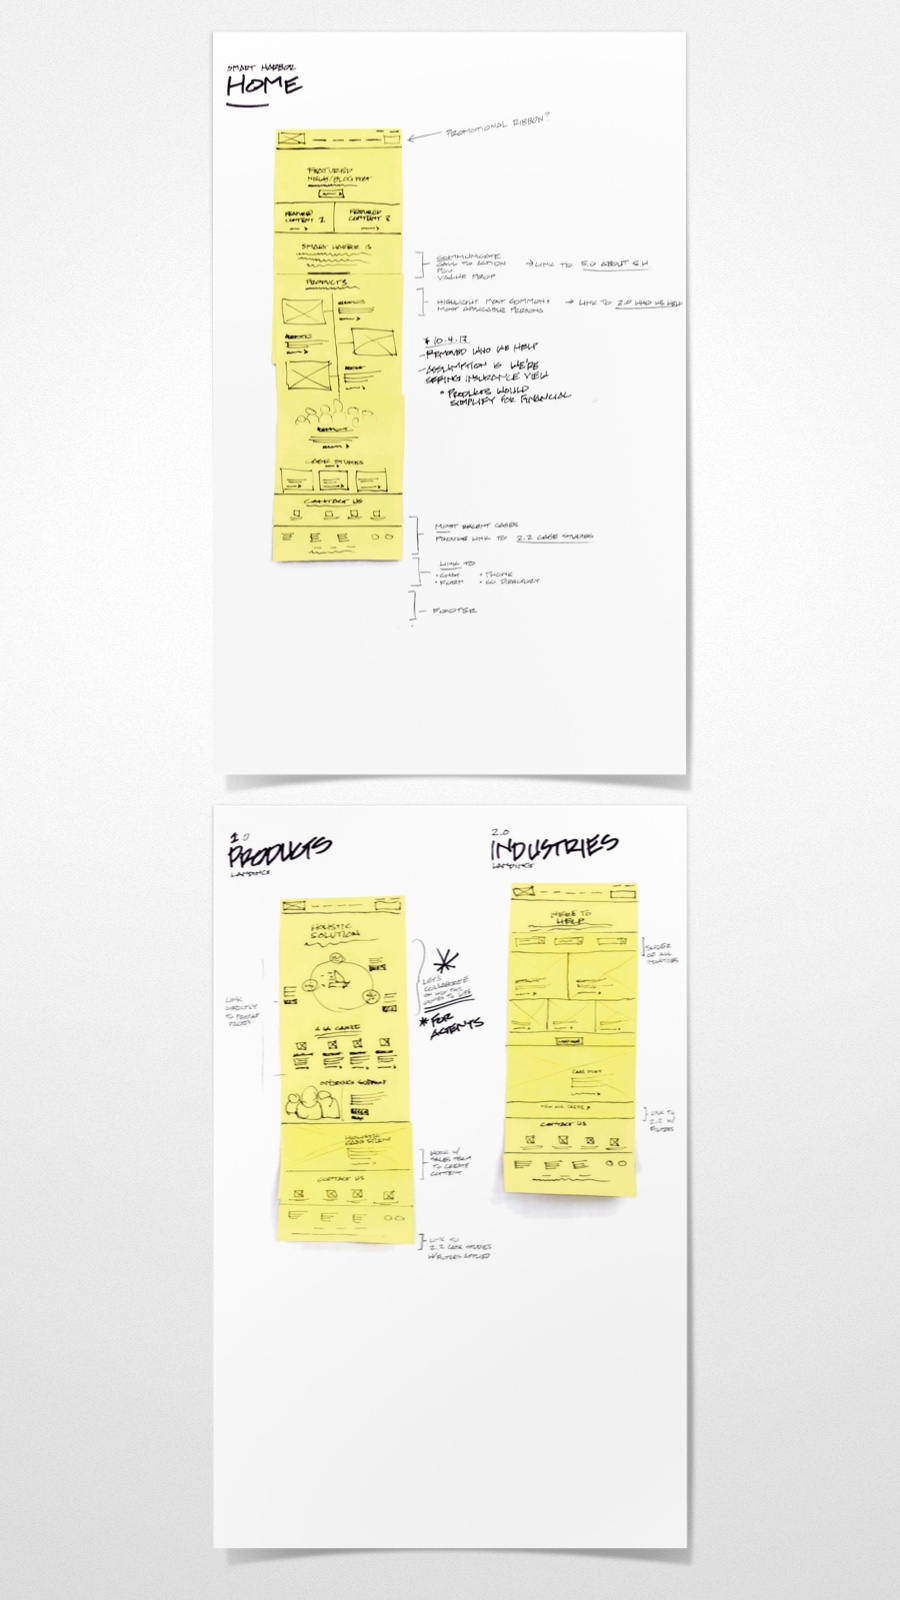 SMART HARBOR
HOME
PROMOTIONAL RIBBON?
FEATURED
NEWS/BLOG POST
FEATURED
CONTENT 2
FEATURED
CONTENT 3
SMART HARBOR IS
CALL TO ACTION
POV
VALUE PROP
→ LINK TO 5.0 ABOUT S.H
PRODUCTS
HIGHLIGHT MOST COMMON &
MOST APPLICABLE PERSONS
→ LINK TO 2.0 WHO WE HELP
* 10.4.17
- REMOVED WHO WE HELP
- ASSUMPTION IS WE'RE
SEEING INSURANCE VIEW
• PRODUCTS WOULD
SIMPLIFY FOR FINANCIAL
CASE STUDIES
CONTACT US
MOST RECENT CASES
PROVIDE LINK TO 2.2 CASE STUDIES
LINK TO
• CHAT • PHONE
• FORM • CO DIRECTORY
FOOTER
1.0
PRODUCTS
LANDING
HOLISTIC
SOLUTION
LINK
DIRECTLY
TO
LET'S
COLLABORATE
ON HOW THIS
COMES TO LIFE
* FOR
AGENTS
ONGOING SUPPORT
HOLISTIC
CASE STUDY
WORK W/
SALES TEAM
TO CREATE
CONTENT
CONTACT US
LINK TO
2.2 CASE STUDIES
W/ FILTERS APPLIED
2.0
INDUSTRIES
LANDING
HERE TO
HELP
SLIDER
OF ALL
INDUSTRIES
CASE STUDY
VIEW ALL CASES >
LINK TO
2.2 W/
FILTERS
CONTACT US